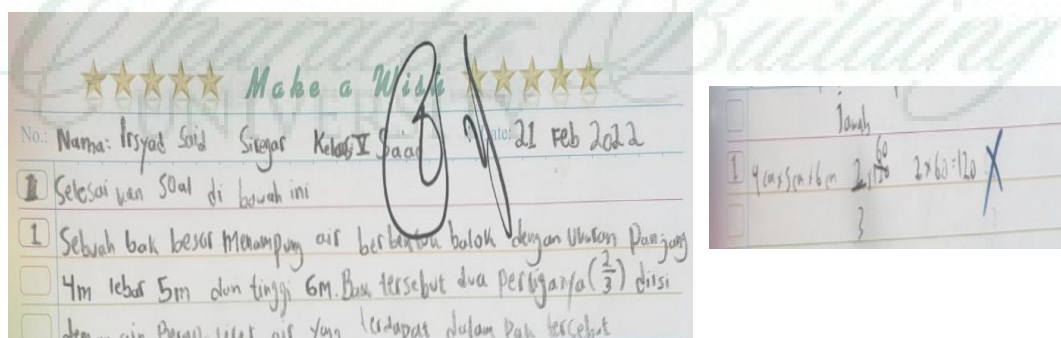 Character Building
UNIVERSITY
Make a Wish
No.: Nama: Irsyad Said Siregar Kelas: V Saad Date: 21 Feb 2022
1 Selesaikan soal di bawah ini
1 Sebuah bak besar menampung air berbentuk balok dengan ukuran Panjang
4m lebar 5m dan tinggi 6m. Bak tersebut dua pertiganya (2/3) diisi
dengan air Berapa liter air yang terdapat dalam bak tersebut
Jawab
1 4cm×5cm×6cm 2 × 60 = 120 X
3